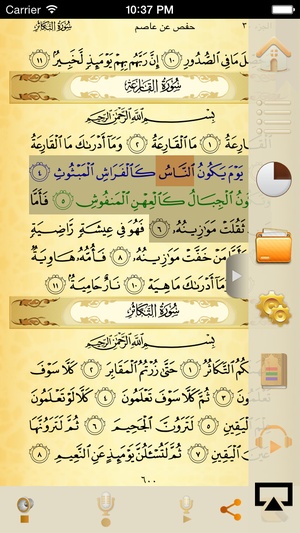 Carrier 10:37 PM
حفص عن عاصم سُورَةُ التَّكَاثُرِ
مَا فِى ٱلصُّدُورِ ١٠ إِنَّ رَبَّهُم بِهِمْ يَوْمَئِذٍ لَّخَبِيرٌۢ ١١
سُورَةُ القَارِعَةِ
بِسْمِ ٱللَّهِ ٱلرَّحْمَٰنِ ٱلرَّحِيمِ
ٱلْقَارِعَةُ ١ مَا ٱلْقَارِعَةُ ٢ وَمَآ أَدْرَىٰكَ مَا ٱلْقَارِعَةُ
يَوْمَ يَكُونُ ٱلنَّاسُ كَٱلْفَرَاشِ ٱلْمَبْثُوثِ ٤
وَتَكُونُ ٱلْجِبَالُ كَٱلْعِهْنِ ٱلْمَنفُوشِ ٥ فَأَمَّا
ثَقُلَتْ مَوَٰزِينُهُۥ ٦ فَهُوَ فِى عِيشَةٍ رَّاضِيَةٍ
وَأَمَّا مَنْ خَفَّتْ مَوَٰزِينُهُۥ ٨ فَأُمُّهُۥ هَاوِيَةٌ
وَمَآ أَدْرَىٰكَ مَا هِيَهْ ١٠ نَارٌ حَامِيَةٌۢ ١١
سُورَةُ التَّكَاثُرِ
بِسْمِ ٱللَّهِ ٱلرَّحْمَٰنِ ٱلرَّحِيمِ
ٱلتَّكَاثُرُ ١ حَتَّىٰ زُرْتُمُ ٱلْمَقَابِرَ ٢ كَلَّا سَوْفَ
تَعْلَمُونَ ٣ ثُمَّ كَلَّا سَوْفَ تَعْلَمُونَ ٤ كَلَّا لَوْ تَعْلَمُونَ
ٱلْيَقِينِ ٥ لَتَرَوُنَّ ٱلْجَحِيمَ ٦ ثُمَّ لَتَرَوُنَّهَا
ٱلْيَقِينِ ٧ ثُمَّ لَتُسْـَٔلُنَّ يَوْمَئِذٍ عَنِ ٱلنَّعِيمِ ٨
٦٠٠